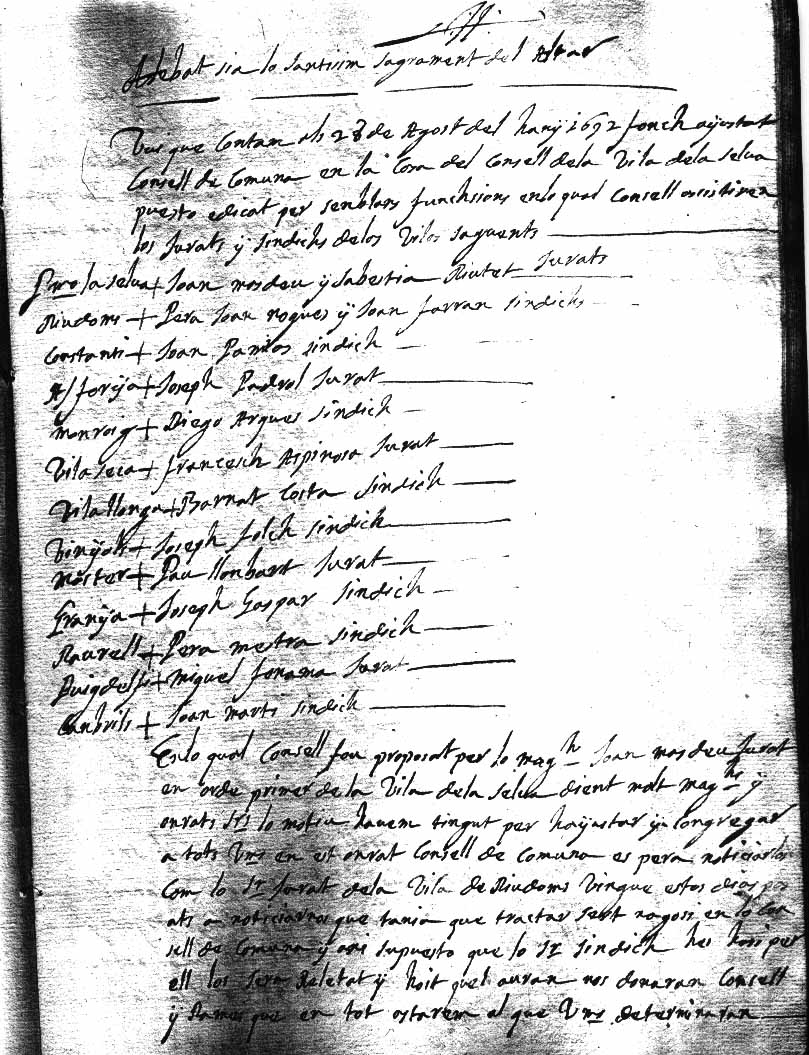 Alebat sia lo santissim sagrament del Altar
Vuy que Contam als 28 de Agost del hany 1692 fonch ajustat
Consell de Comuna en la Casa del Consell de la Vila dela selva
puesto edicat per senblans funchsions enlo qual Consell assistiren
los Jurats y sindichs delos Viles saguents
Pmo la selva + Joan masdeu y sabestia Riutet Jurats
Riudoms + Pera Joan nogues y Joan farran sindichs
Constanti + Joan Pamies sindich
Alforja + Joseph Padrol Jurat
Monroig + Diego Argues sindich
Vilaseca + francesch Aspinosa Jurat
Vilallonga + Barnat Costa sindich
Vinÿols + Joseph folch sindich
Moster + Pau llonbart Jurat
Granÿa + Joseph Gaspar sindich
Raurell + Pera mestra sindich
Puigdelfi + Miquel fonama Jurat
Canbrils + Joan marti sindich
Enlo qual Consell fou proposat per lo magh Joan masdeu Jurat
en orde primer de la Vila dela selva dient molt maghs y
onrats Srs lo motiu havem tingut per haÿustar ÿ congregar
a tots Vms en est onrat Consell de Comuna es pera noticiarlos
Com lo Sr Jurat dela Vila de Riudoms Vingue estos dias pas
ats a noticiarnos que tania que tractar sert nagosi en lo Con
sell de Comuna y axi supuesto que lo Sr sindich hes hasi per
ell los sera Reletat ÿ hoit quel auran nos donaran Consell
ÿ que en tot estarem al que Vms determinaran